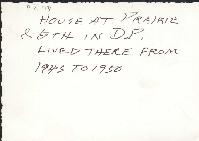 HOUSE AT PRAIRIE
& 5TH IN D.P.
LIVED THERE FROM
1945 TO 1950